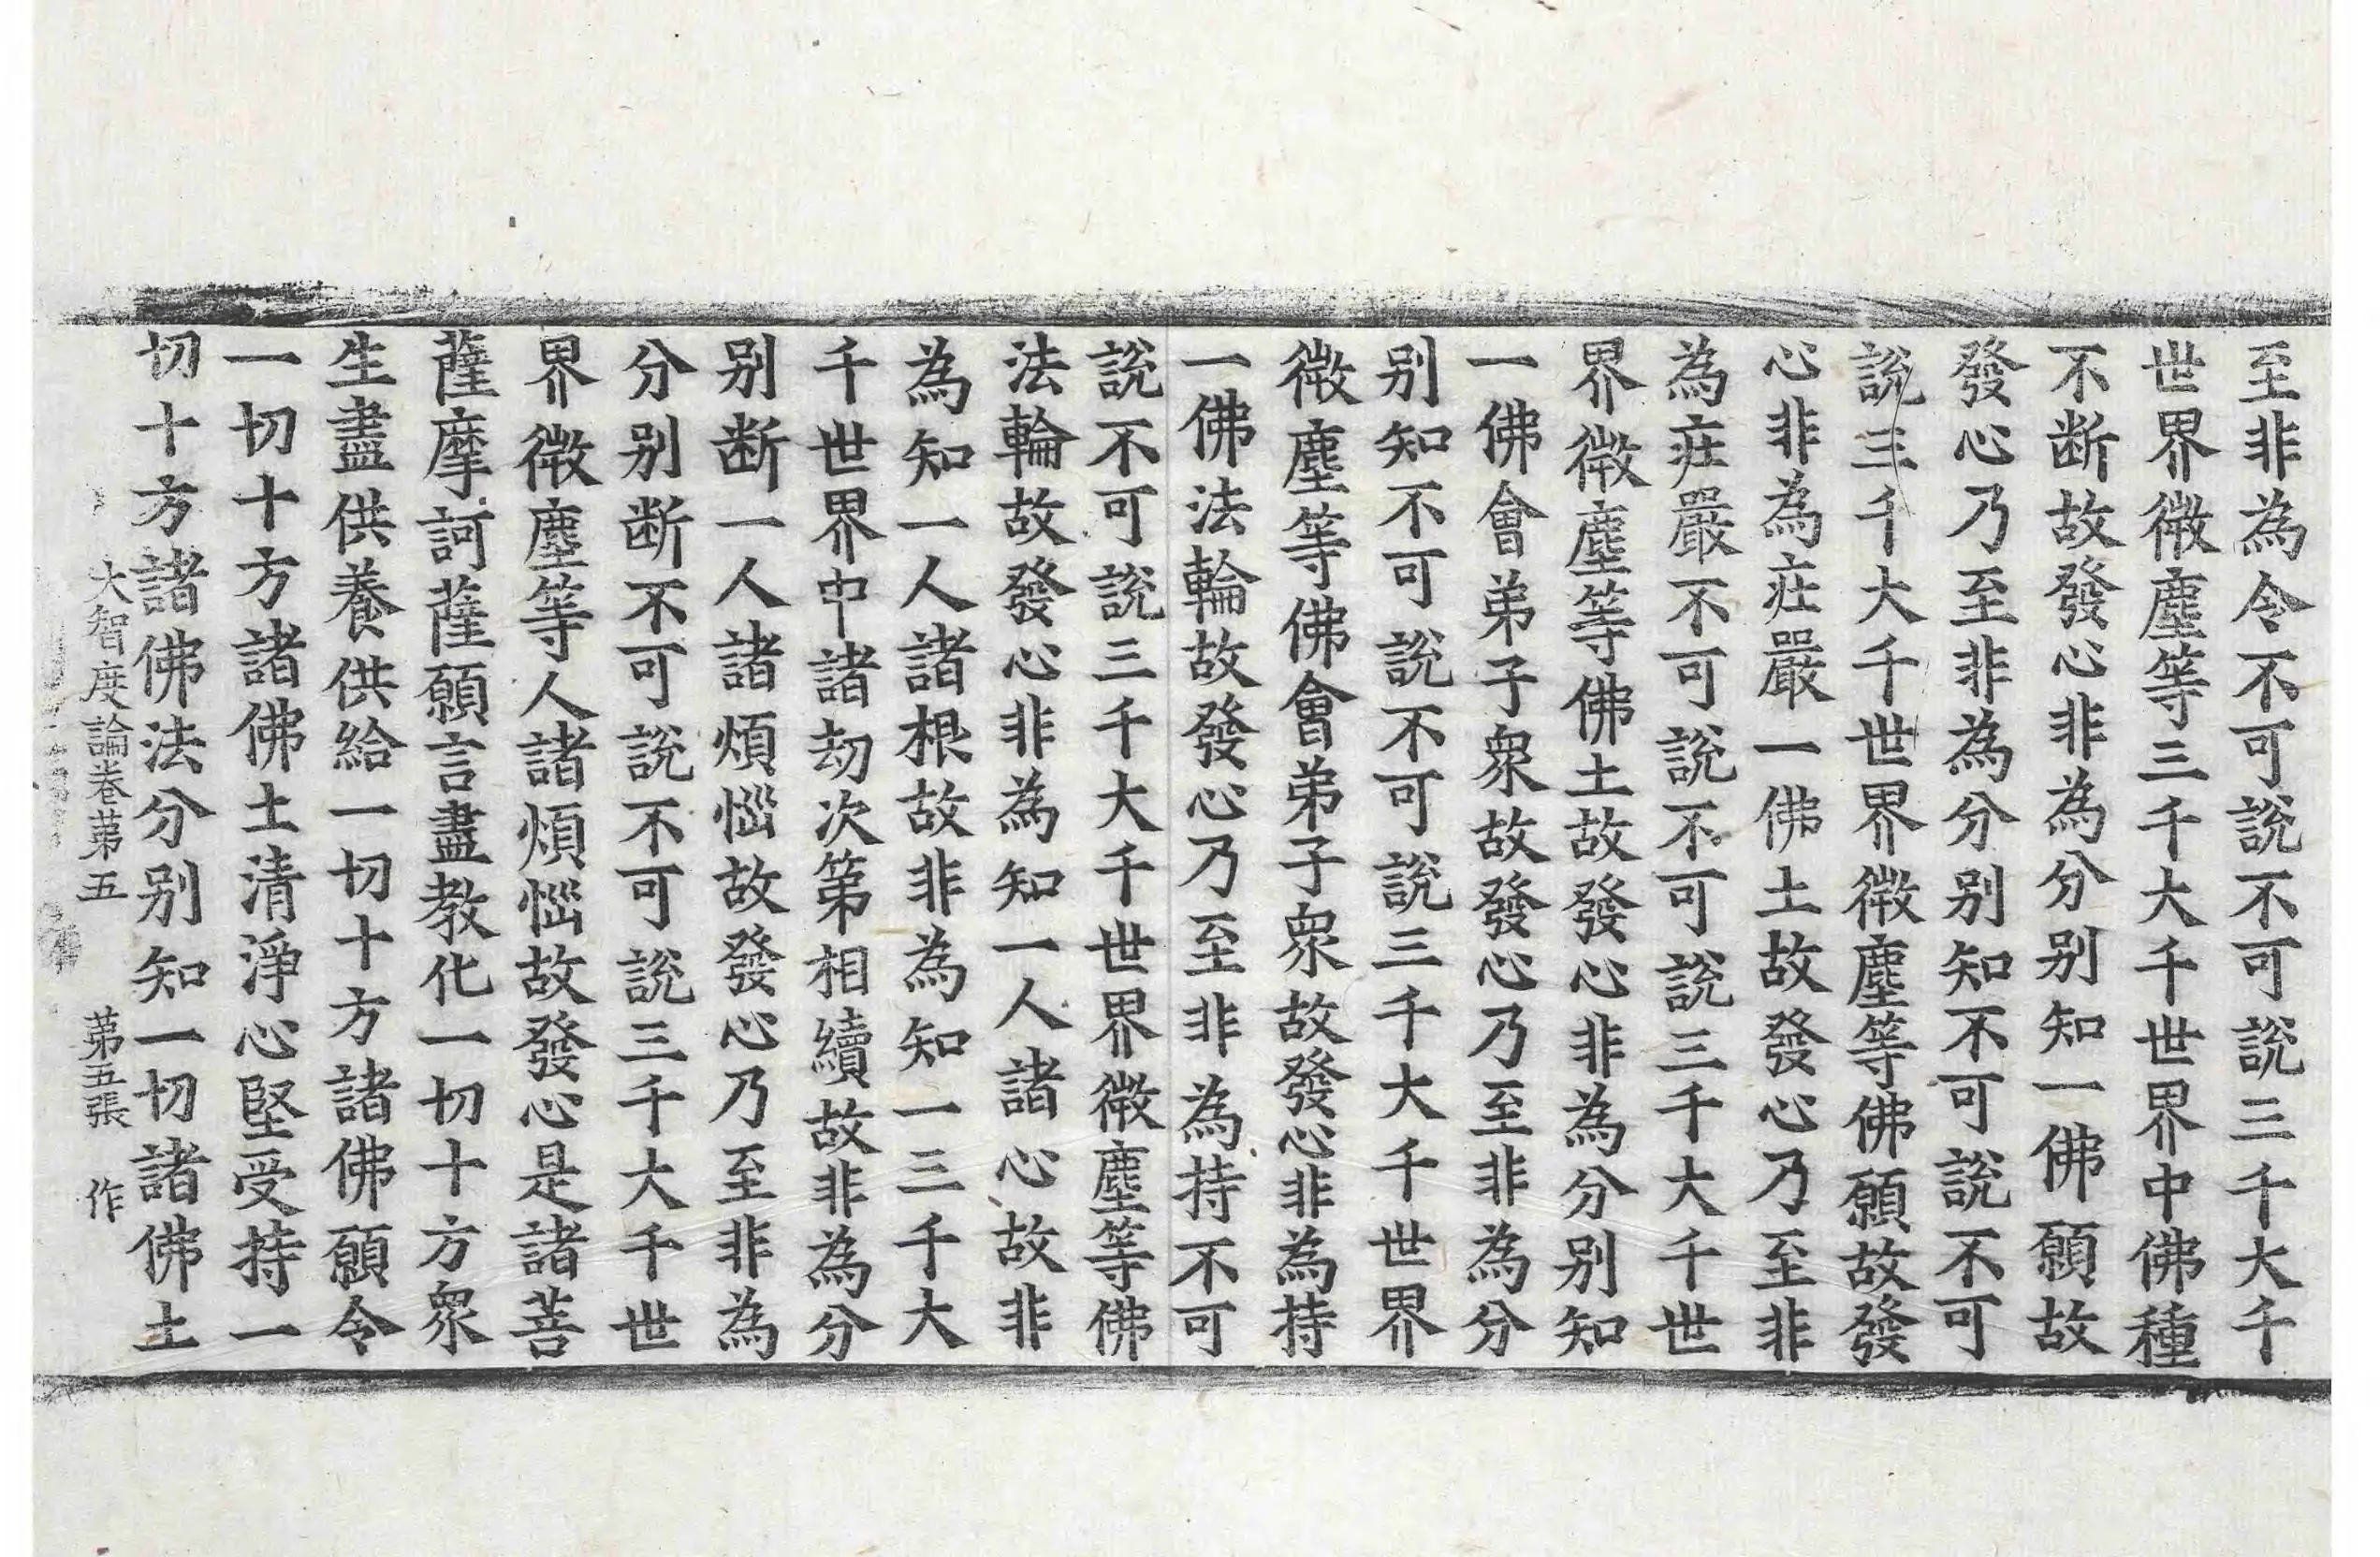 至非為令不可說不可說三千大千
世界微塵等三千大千世界中佛種
不断故發心非為分别知一佛願故
發心乃至非為分别知不可說不可
說三千大千世界微塵等佛願故發
心非為莊嚴一佛土故發心乃至非
為莊嚴不可說不可說三千大千世
界微塵等佛土故發心非為分别知
一佛會弟子衆故發心乃至非為分
别知不可說不可說三千大千世界
微塵等佛會弟子衆故發心非為持
一佛法輪故發心乃至非為持不可
說不可說三千大千世界微塵等佛
法輪故發心非為知一人諸心故非
為知一人諸根故非為知一三千大
千世界中諸劫次第相續故非為分
别断一人諸煩惱故發心乃至非為
分别断不可說不可說三千大千世
界微塵等人諸煩惱故發心是諸菩
薩摩訶薩願言盡教化一切十方衆
生盡供養供給一切十方諸佛願令
一切十方諸佛土清淨心堅受持一
切十方諸佛法分别知一切諸佛土
大智度論卷苐五 苐五張 作